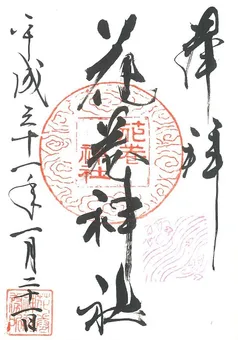 奉拝
花巻神社
花巻神社
平成三十一年一月二十一日